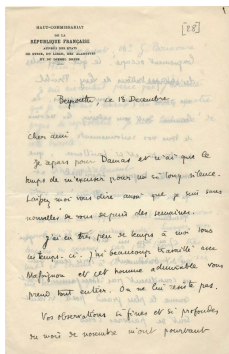 HAUT-COMMISSARIAT
DE LA
RÉPUBLIQUE FRANÇAISE
AUPRÈS DES ÉTATS
DE SYRIE, DU LIBAN, DES ALAOUITES
ET DU DJEBEL DRUZE
[28]
Beyrouth, ce 13 Décembre
Cher ami
Je repars pour Damas et n'ai que le
temps de m'excuser pour un si long silence.
Laissez moi vous dire aussi que je suis sans
nouvelles de vous depuis des semaines.
J'ai eu très peu de temps à moi tous
ces temps-ci. J'ai beaucoup travaillé avec
Massignon et cet homme admirable vous
prend tout entier. On ne lui résiste pas.
Vos observations si fines et si profondes
du mois de novembre m'ont pourtant